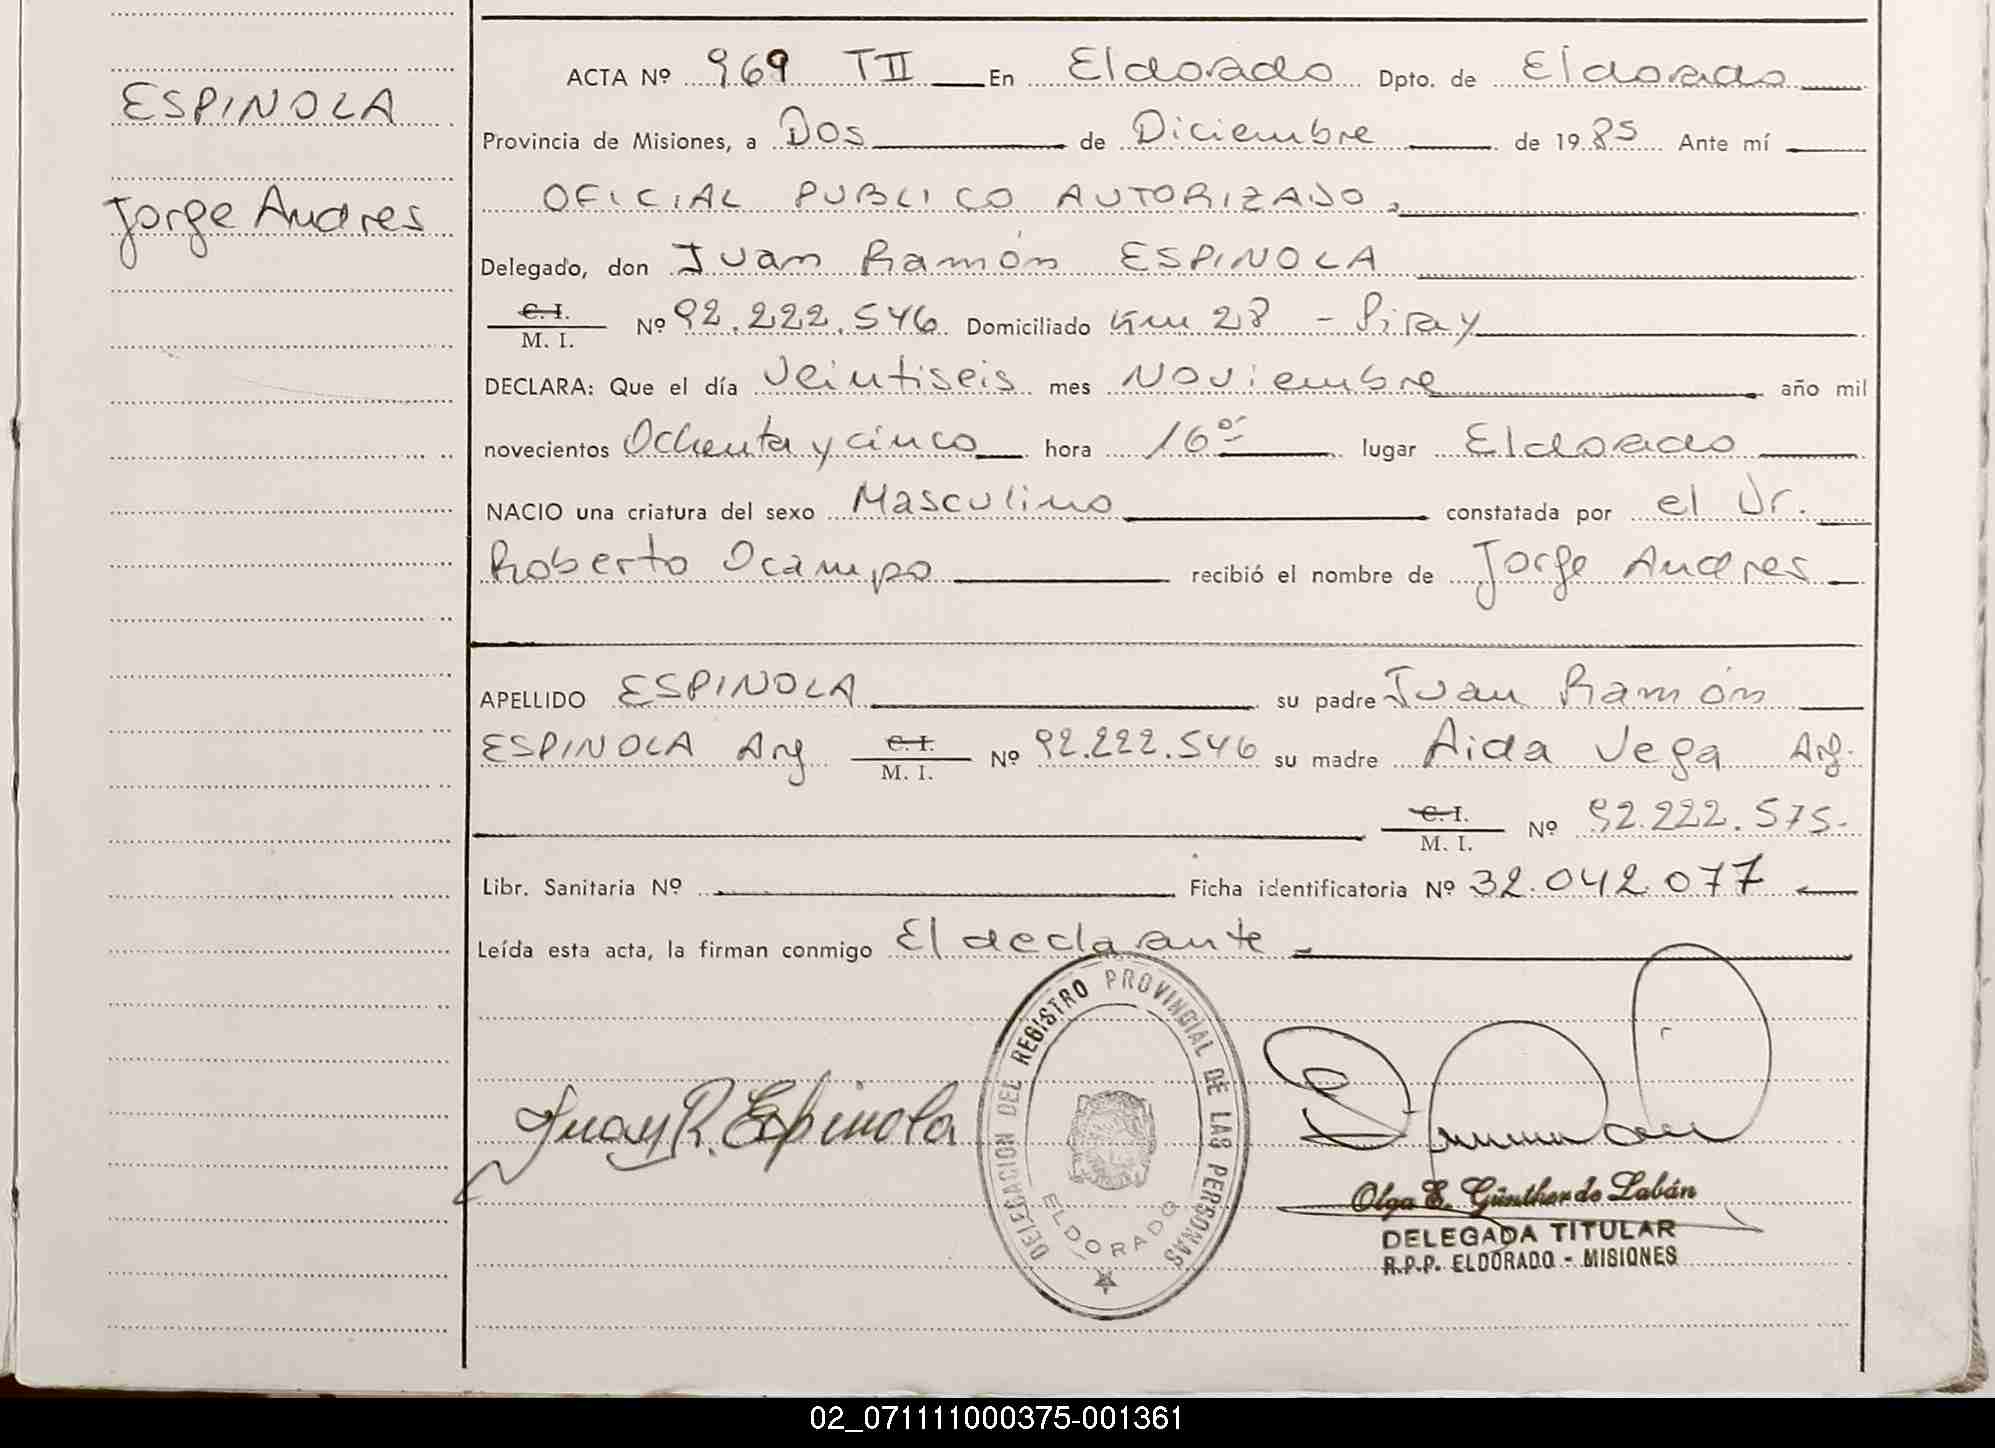 ESPINOLA
Jorge Andres
ACTA Nº 969 TII En Eldorado Dpto. de Eldorado
Provincia de Misiones, a Dos de Diciembre de 1985 Ante mí
OFICIAL PUBLICO AUTORIZADO.
Delegado, don Juan Ramón ESPINOLA
C. I.
M. I. Nº 92.222.546 Domiciliado Km 28 - Piray
DECLARA: Que el día Veintiseis mes Noviembre año mil
novecientos Ochenta y cinco hora 16 lugar Eldorado
NACIO una criatura del sexo Masculino constatada por el Dr.
Roberto Ocampo recibió el nombre de Jorge Andres
APELLIDO ESPINOLA su padre Juan Ramón
ESPINOLA Arg C. I. Nº 92.222.546 su madre Aida Vega Arg.
M. I.
C. I. Nº 92.222.575.
M. I.
Libr. Sanitaria Nº Ficha identificatoria Nº 32.042.077
Leída esta acta, la firman conmigo El declarante.
DELEGACION DEL REGISTRO PROVINCIAL DE LAS PERSONAS
ELDORADO
Juan R. Espinola
Olga E. Günther de Labán
DELEGADA TITULAR
R.P.P. ELDORADO - MISIONES
02_071111000375-001361